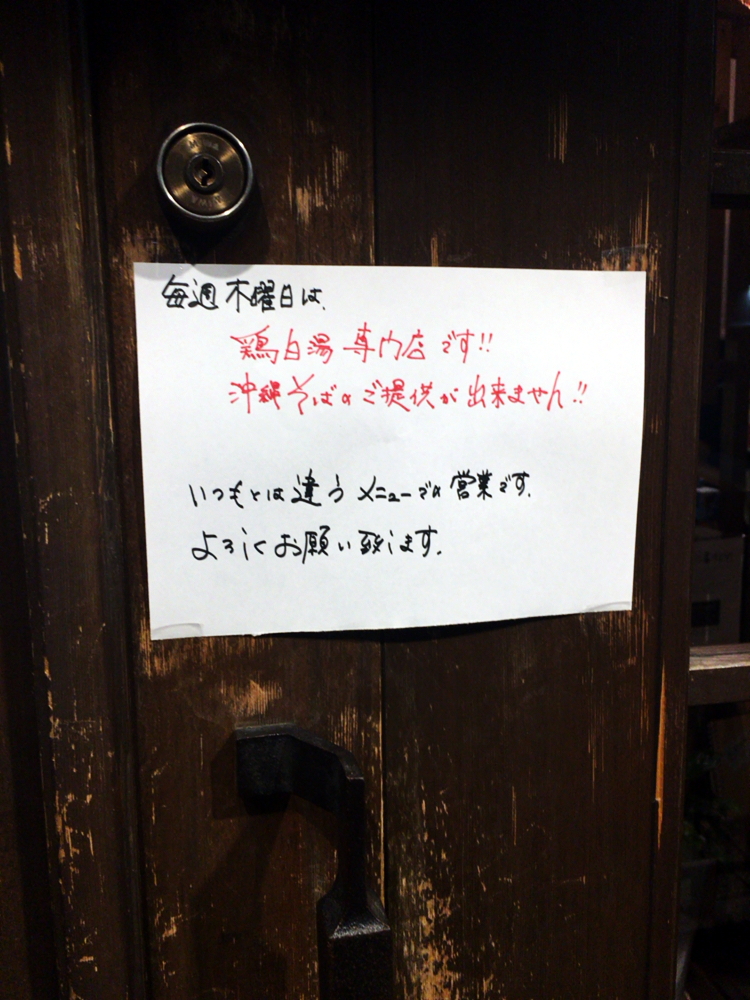 毎週木曜日は、
鶏白湯専門店です!!
沖縄そばのご提供が出来ません!!
いつもとは違うメニューでの営業です.
よろしくお願い致します.